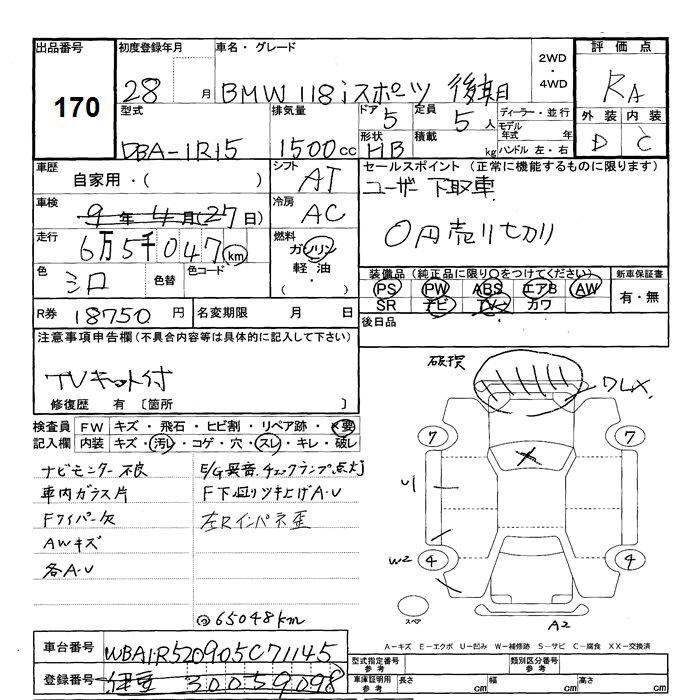 出品番号 初度登録年月 車名・グレード 2WD・4WD 評価点
170 28 月 BMW 118iスポーツ 後期 RA
型式 排気量 ドア 定員 ディーラー・並行 外装 内装
DBA-1R15 1500cc 5 5人 モデル年式 年 D C
形状 積載 kg ハンドル 左・右
HB
車歴 自家用・( ) シフト AT セールスポイント (正常に機能するものに限ります)
ユーザー下取車
車検 9年4月(27日) 冷房 AC
0円売り切り
走行 6万5千047km 燃料 ガソリン 軽油 ( ・ )
色 シロ 色替 色コード
装備品(純正品に限り○をつけてください) 新車保証書
PS PW ABS エアB AW 有・無
SR ナビ TV カワ
R券 18750円 名変期限 月 日 後日品
注意事項申告欄(不具合内容等は具体的に記入して下さい)
TVキット付
修復歴 有 [箇所 ]
破損
ワレX
検査員記入欄 FW キズ・飛石・ヒビ割・リペア跡・×要
内装 キズ・汚レ・コゲ・穴・スレ・キレ・破レ
7 7
ナビモニター不良 E/G異音.チェックランプ点灯
車内ガラス片 F下回リツキ上げA・U
Fワイパー欠 左Rインパネ歪
AWキズ
各A・U
X
U
W2 4 4
スペア
A2
65048km
A－キズ E－エクボ U－凹み W－補修跡 S－サビ C－腐食 XX－交換済
車台番号 WBA1R520905C71145
型式指定番号 参考 類別区分番号 参考
登録番号 30059098
車庫証明用 参考 長さ cm 幅 cm 高さ cm